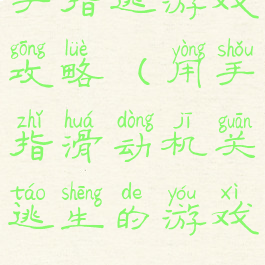 手指逃游戏
gōng lüè yòng shǒu
攻略（用手
zhǐ huá dòng jī guān
指滑动机关
táo shēng de yóu xì
逃生的游戏